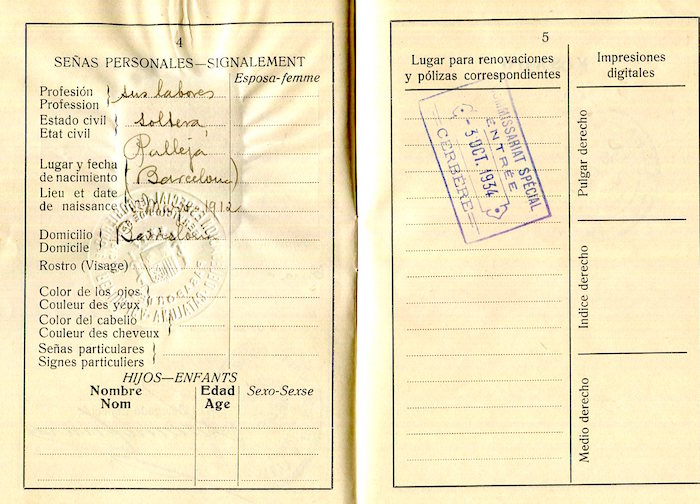 4
SEÑAS PERSONALES—SIGNALEMENT
Esposa-femme
Profesión
Profession
sus labores
Estado civil
Etat civil
soltera
Pallejá
Lugar y fecha
de nacimiento
(Barcelona)
Lieu et date
de naissance
1912
Domicilio
Domicile
Barcelona
Rostro (Visage)
Color de los ojos
Couleur des yeux
Color del cabello
Couleur des cheveux
Señas particulares
Signes particuliers
HIJOS—ENFANTS
Nombre
Nom
Edad
Age
Sexo-Sexse
5
Lugar para renovaciones
y pólizas correspondientes
Impresiones
digitales
COMMISSARIAT SPÉCIAL
ENTRÉE
- 3 OCT. 1934
CERBÈRE
Pulgar derecho
Indice derecho
Medio derecho